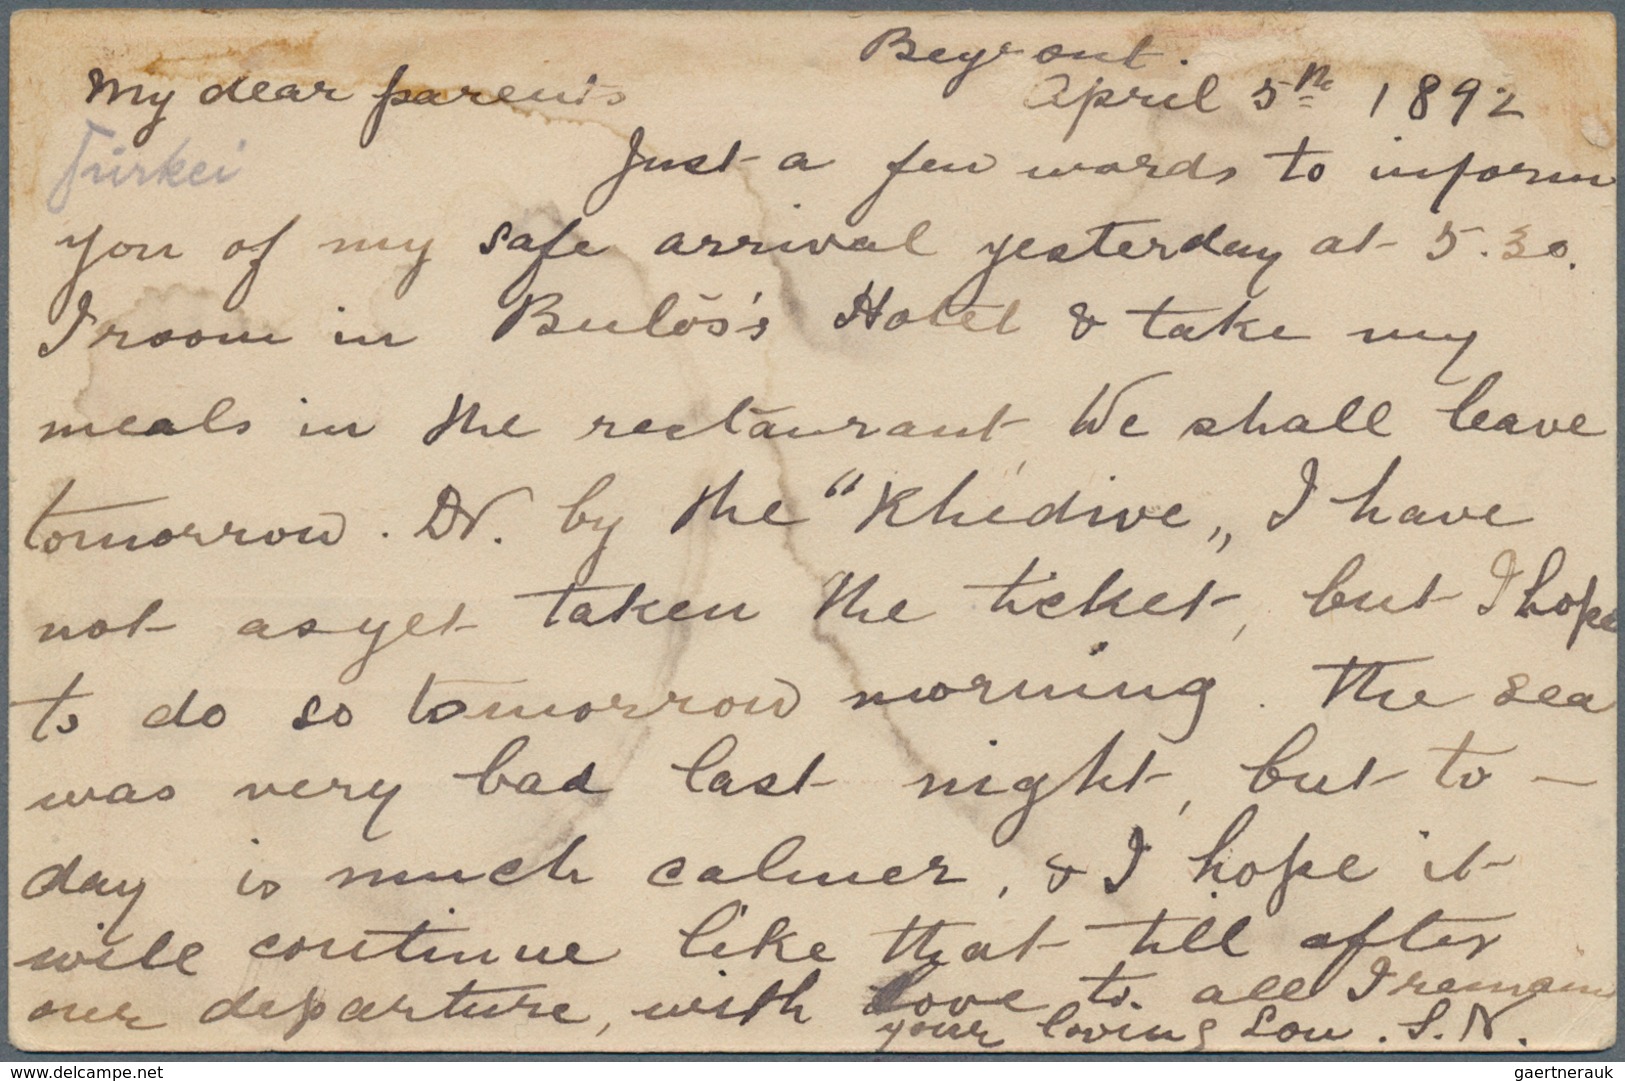 Beyrout.
My dear parents April 5th 1892
Türkei
Just a few words to inform
you of my safe arrival yesterday at 5.30.
I room in Bulos's Hotel & take my
meals in the restaurant, We shall leave
tomorrow. DV. by the “Khedive„ I have
not as yet taken the ticket, but I hope
to do so tomorrow morning. The sea
was very bad last night, but to-
day is much calmer, & I hope it
will continue like that till after
our departure, with love to all I remain
your loving Son. S.N.
www.delcampe.net gaertnerauk